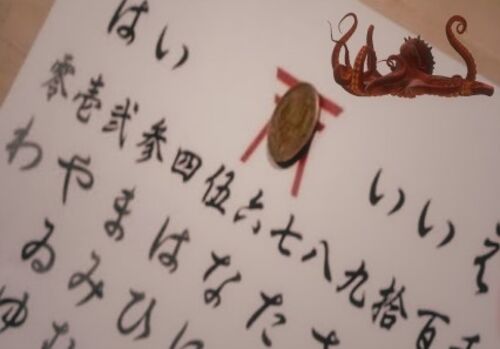 はい
いいえ
零壱弐参四伍六七八九拾百
わやまはなた
ゐみひ
ゆむ